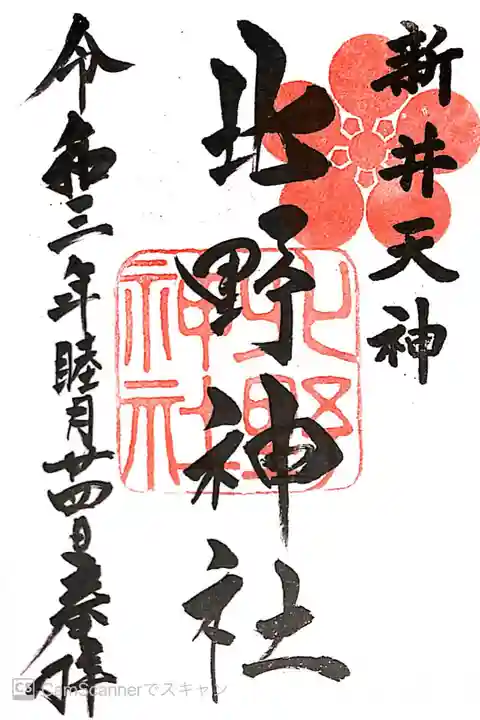 新井天神
北野神社
令和三年睦月廿四日奉拝
北野
神社
CS CamScannerでスキャン